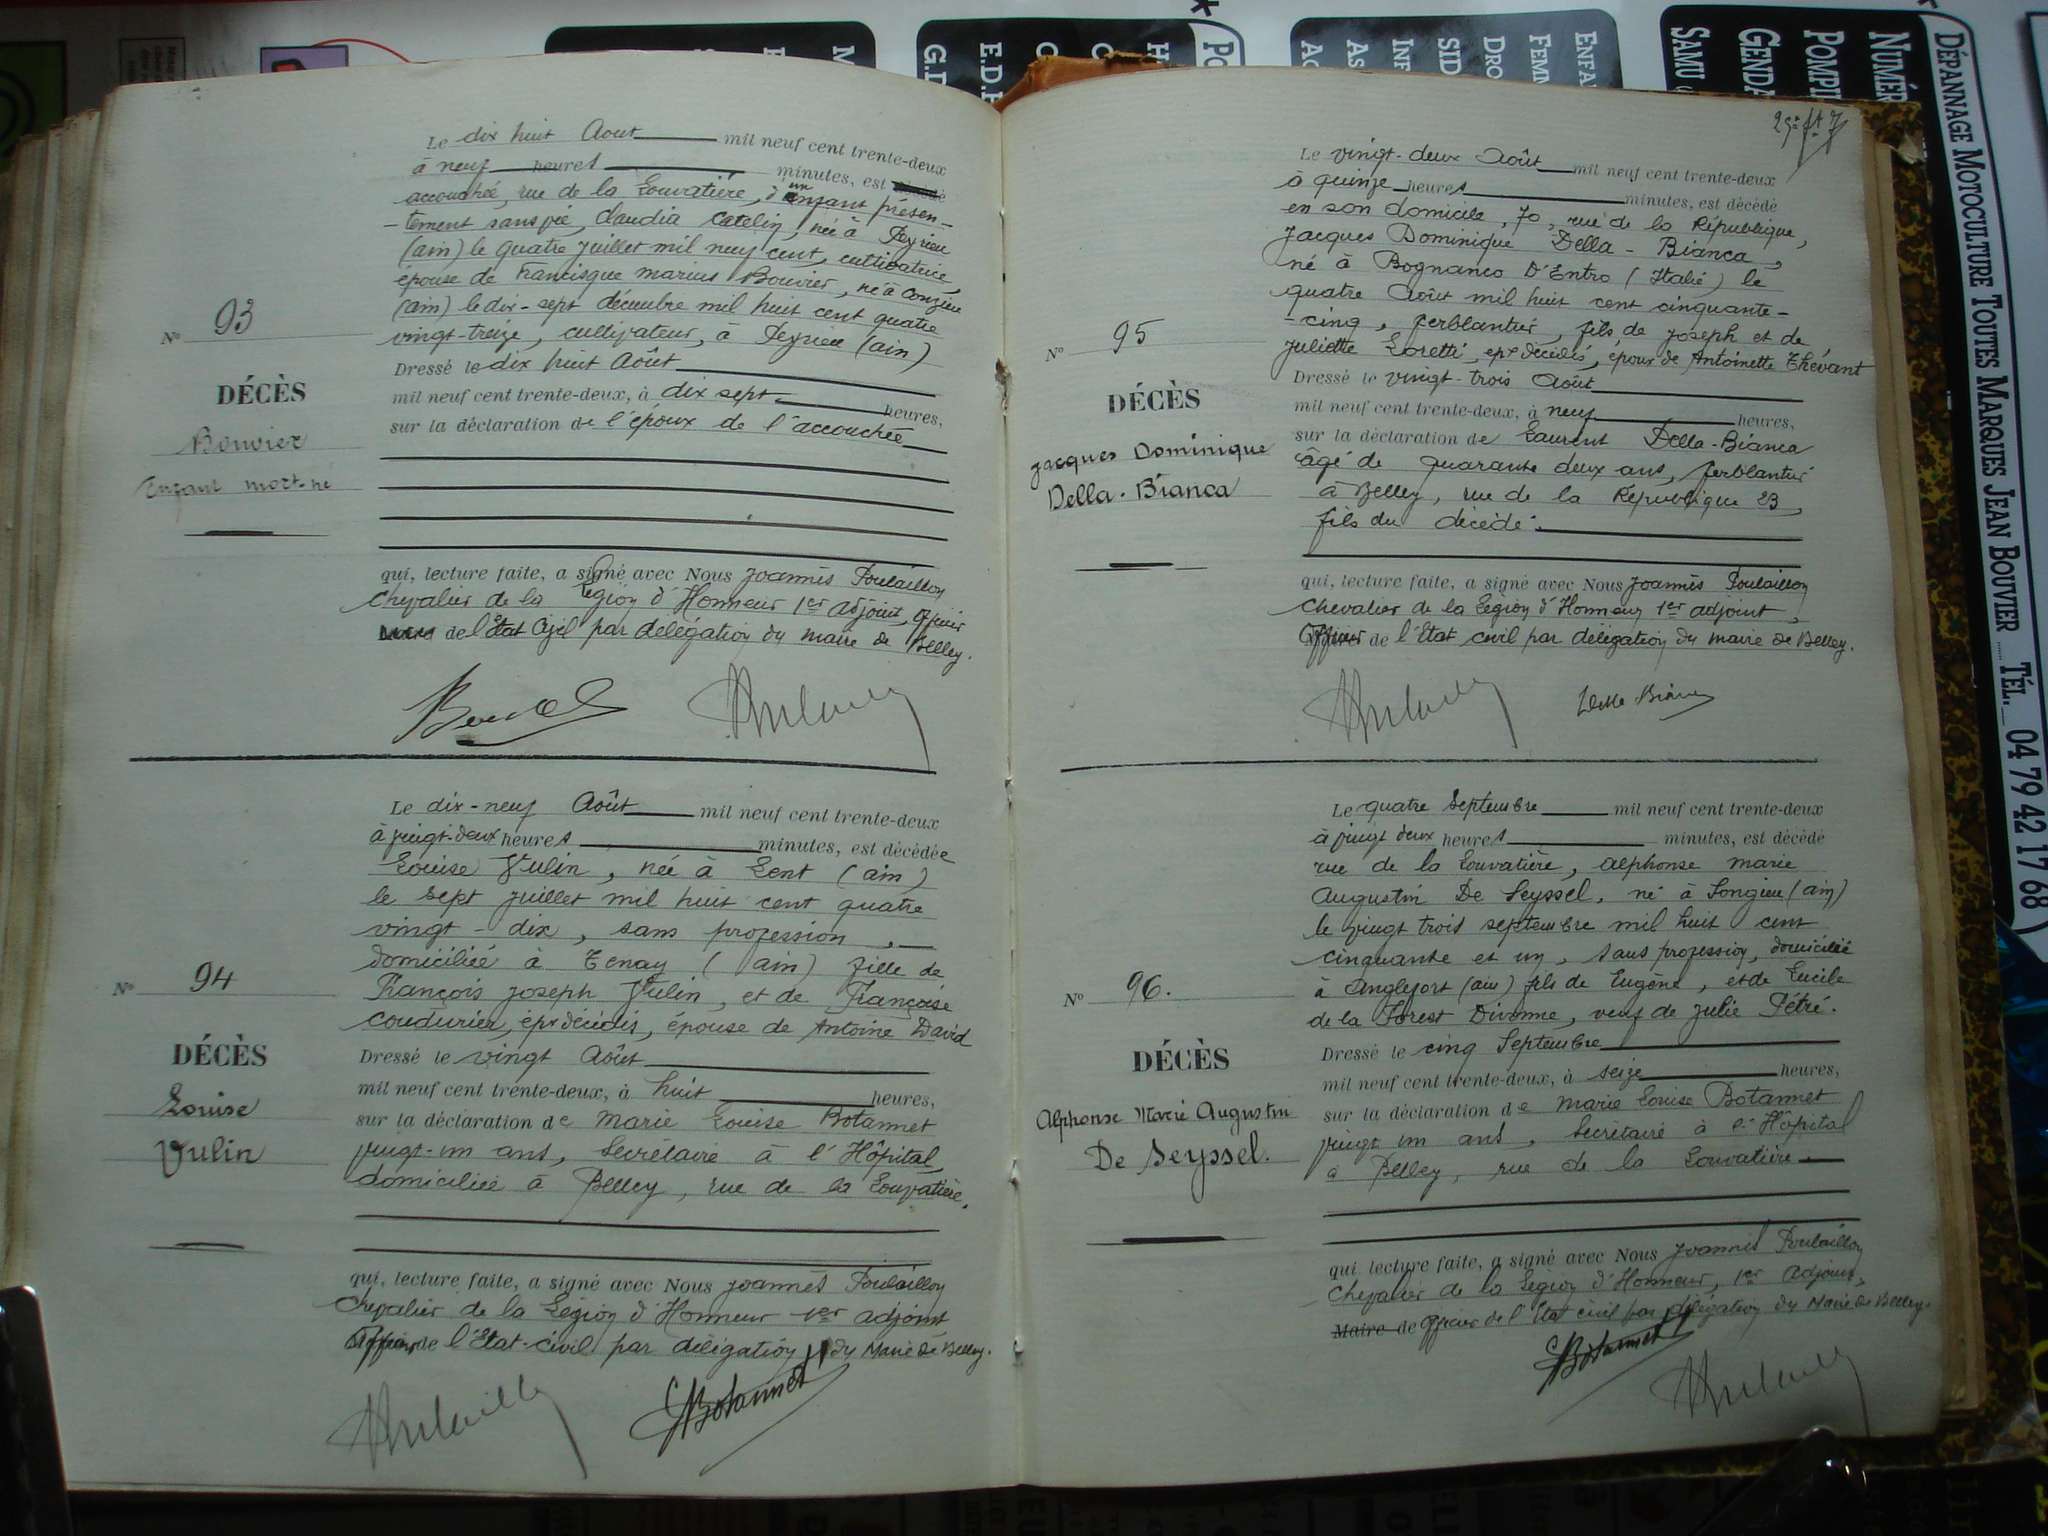 Le dix huit Aout mil neuf cent trente-deux
à neuf heures minutes, est
accouchée, rue de la Louvatière, d'un enfant présen-
-tement sans vie, Claudia Catelin, née à Peyrieu
(ain) le quatre juillet mil neuf cent, cultivatrice,
épouse de Francisque Marius Bouvier, né à Conzieu
(ain) le dix-sept décembre mil huit cent quatre
vingt-treize, cultivateur, à Peyrieu (ain)
Dressé le dix huit Août
mil neuf cent trente-deux, à dix sept heures,
sur la déclaration de l'époux de l'accouchée
No 93
DÉCÈS
Bouvier
Enfant mort-né
qui, lecture faite, a signé avec Nous Joannès Poulaillon
Chevalier de la Légion d'Honneur 1er adjoint, Officier
de l'Etat Civil par délégation du maire de Belley.
Le dix-neuf Août mil neuf cent trente-deux
à vingt-deux heures minutes, est décédée
Louise Vulin, née à Lent (ain)
le sept juillet mil huit cent quatre
vingt-dix, sans profession,
domiciliée à Tenay (ain) fille de
François Joseph Vulin, et de Françoise
Coudurier, épx décédés, épouse de Antoine David
No 94
DÉCÈS
Louise
Vulin
Dressé le vingt Août
mil neuf cent trente-deux, à huit heures,
sur la déclaration de Marie Louise Botannet
vingt-un ans, secrétaire à l'Hôpital,
domiciliée à Belley, rue de la Louvatière.
qui, lecture faite, a signé avec Nous Joannès Poulaillon
Chevalier de la Légion d'Honneur 1er adjoint
Officier de l'Etat-civil par délégation du Maire de Belley.
Botannet
Le vingt-deux Août mil neuf cent trente-deux
à quinze heures minutes, est décédé
en son domicile, 70, rue de la République,
Jacques Dominique Della-Bianca,
né à Bognanco D'Entro (Italie) le
quatre Août mil huit cent cinquante-
-cinq, ferblantier, fils de Joseph et de
Juliette Loretti, epx décédés, époux de Antoinette Thévant
No 95
DÉCÈS
Jacques Dominique
Della-Bianca
Dressé le vingt-trois Août
mil neuf cent trente-deux, à neuf heures,
sur la déclaration de Laurent Della-Bianca
âgé de quarante deux ans, ferblantier
à Belley, rue de la République 23,
fils du décédé.
qui, lecture faite, a signé avec Nous Joannès Poulaillon
Chevalier de la Légion d'Honneur 1er adjoint,
Officier de l'Etat civil par délégation du Maire de Belley.
Della Bianca
Le quatre Septembre mil neuf cent trente-deux
à vingt deux heures minutes, est décédé
rue de la Louvatière, Alphonse Marie
Augustin De Seyssel, né à Songieu (ain)
le vingt trois septembre mil huit cent
cinquante et un, sans profession, domicilié
à Anglefort (ain) fils de Eugène, et de Lucile
de la Forest Divonne, veuf de Julie Pétré.
No 96.
DÉCÈS
Alphonse Marie Augustin
De Seyssel.
Dressé le cinq Septembre
mil neuf cent trente-deux, à seize heures,
sur la déclaration de Marie Louise Botannet
vingt un ans, secrétaire à l'Hôpital
à Belley, rue de la Louvatière.
qui, lecture faite, a signé avec Nous Joannès Poulaillon
Chevalier de la Légion d'Honneur, 1er adjoint,
Maire de Officier de l'Etat civil par délégation du Maire de Belley.
Botannet
DÉPANNAGE MOTOCULTURE TOUTES MARQUES JEAN BOUVIER ...... TÉL._ 04 79 42 17 68
NUMÉR
POMPI
GENDA
SAMU
ENFA
FEMM
DRO
SID
INF
AS
G.D
E.D.F